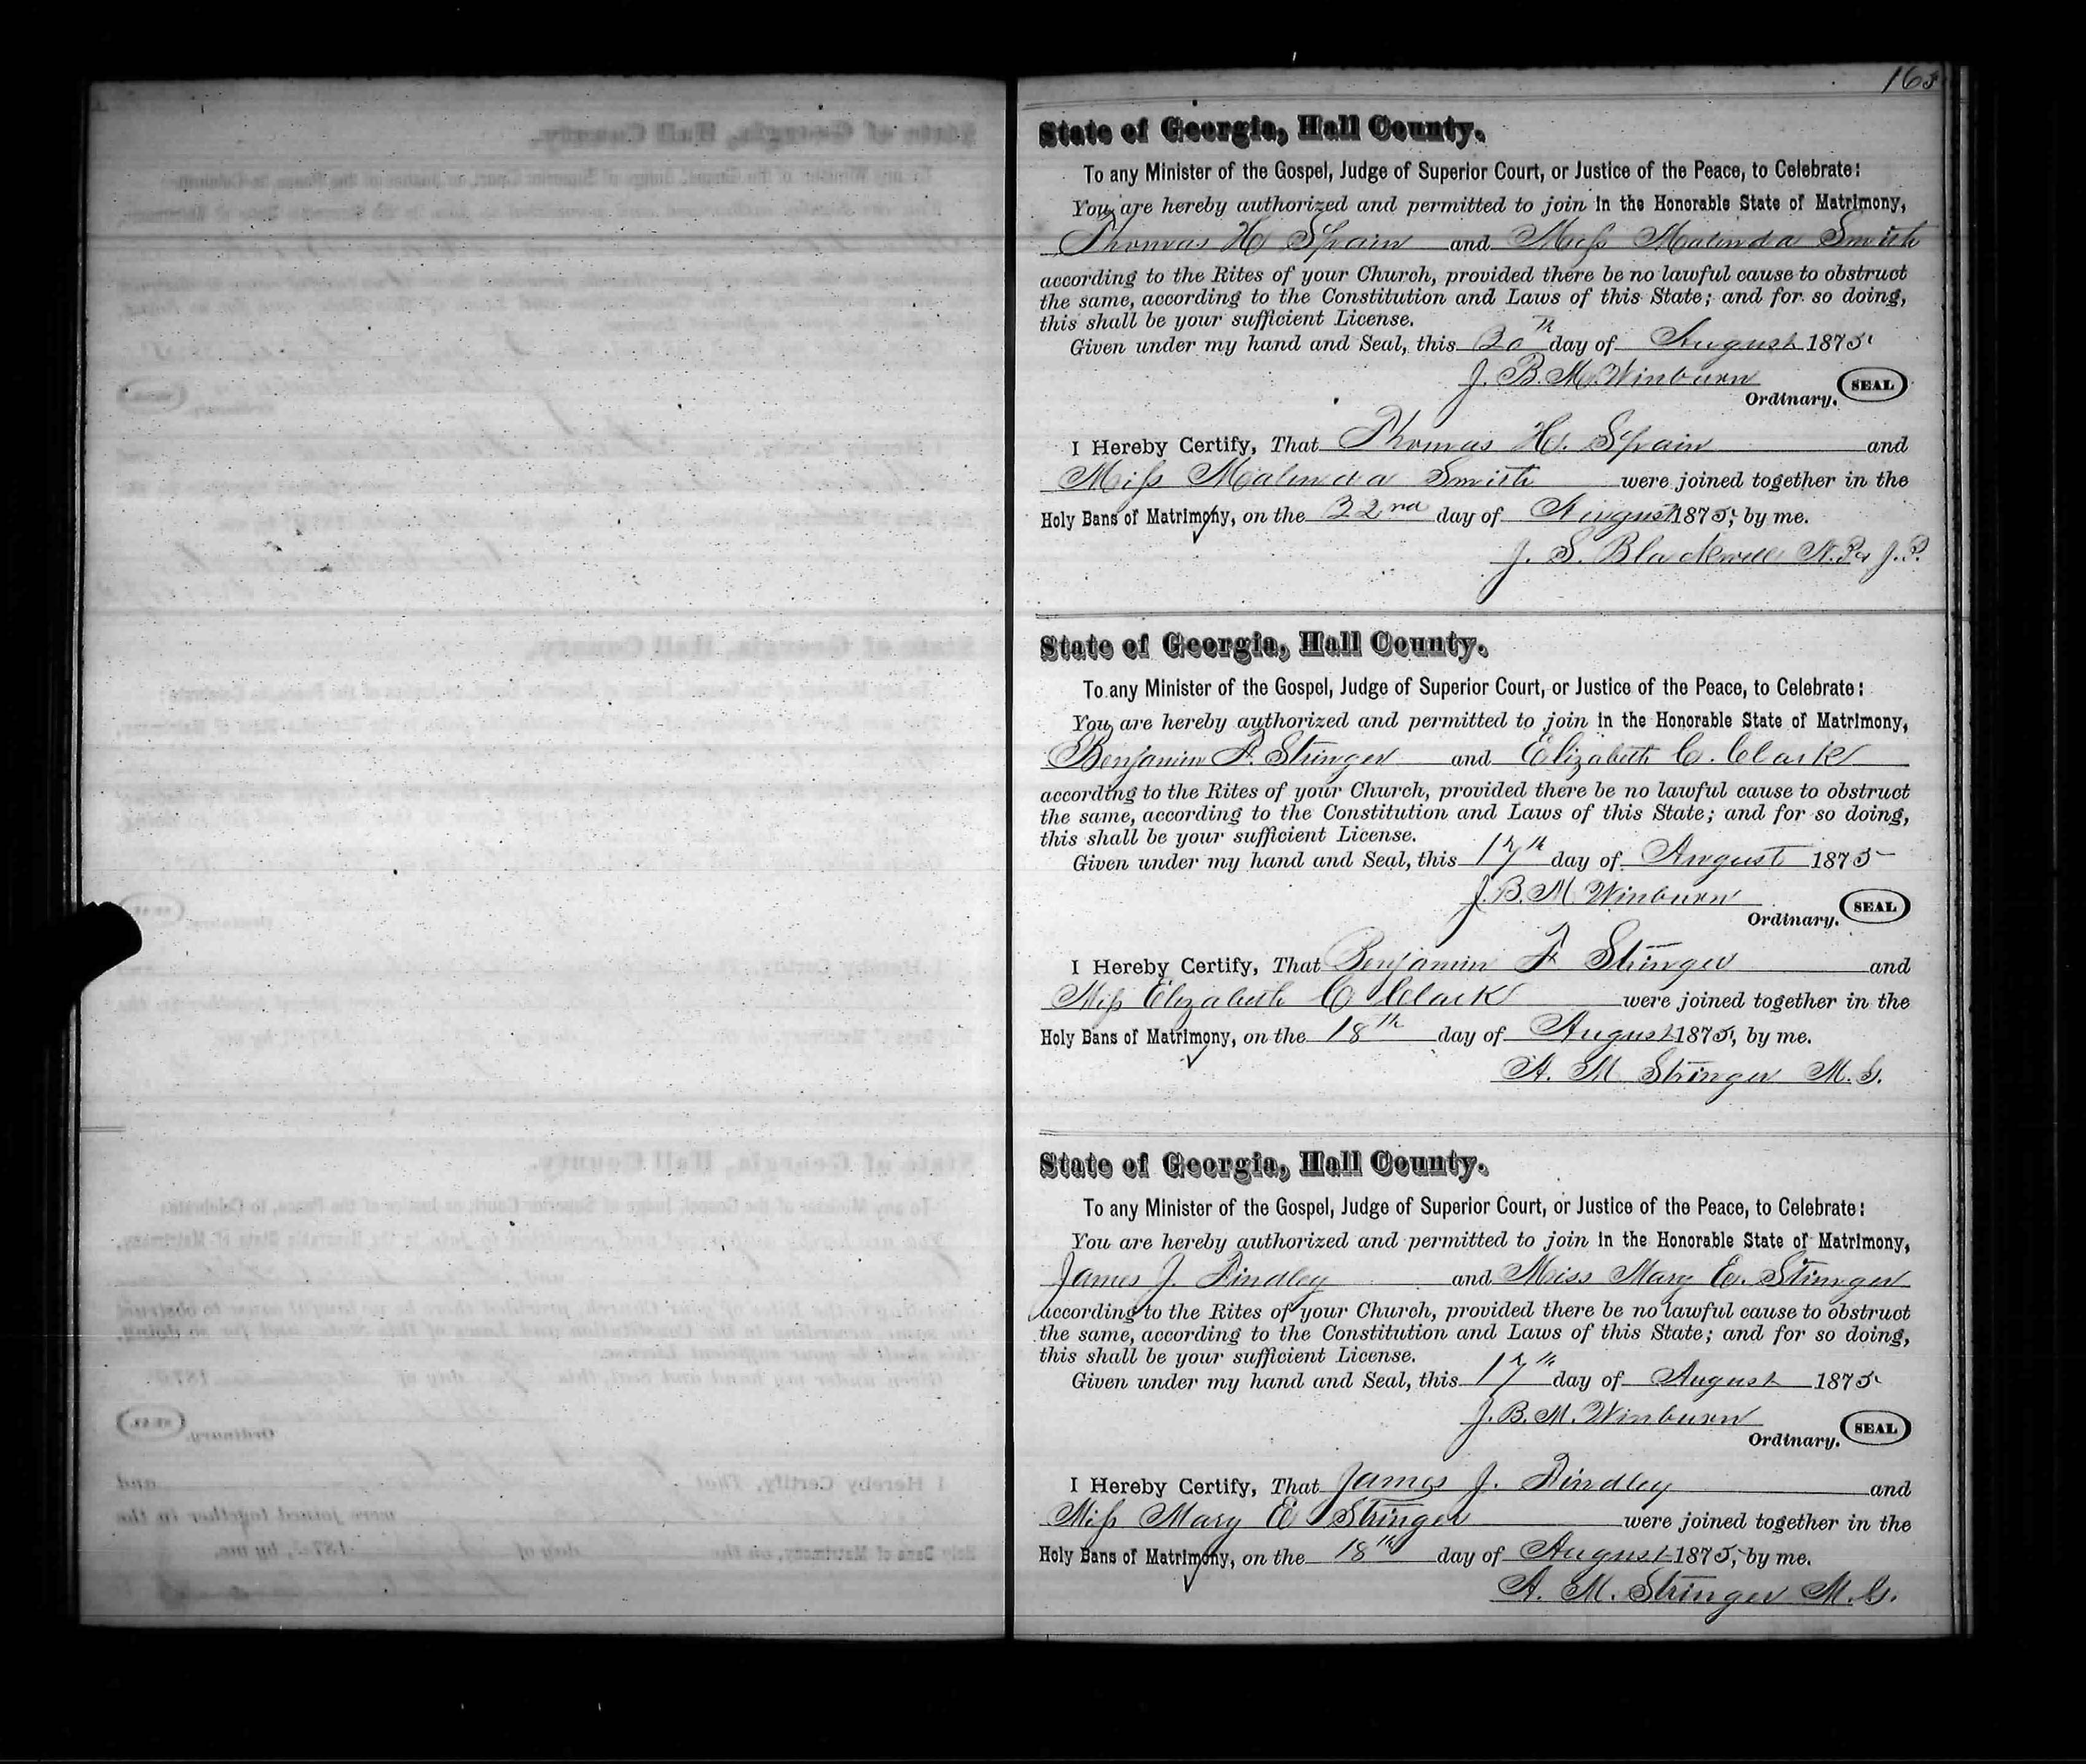 163
State of Georgia, Hall County.
To any Minister of the Gospel, Judge of Superior Court, or Justice of the Peace, to Celebrate:
You are hereby authorized and permitted to join in the Honorable State of Matrimony,
Thomas H Spain and Miss Malinda Smith
according to the Rites of your Church, provided there be no lawful cause to obstruct
the same, according to the Constitution and Laws of this State; and for so doing,
this shall be your sufficient License.
Given under my hand and Seal, this 20th day of August 1875
J. B. M. Winburn
Ordinary. SEAL
I Hereby Certify, That Thomas H. Spain and
Miss Malinda Smith were joined together in the
Holy Bans of Matrimony, on the 22nd day of August 1875, by me.
J. S. Blackwell N. P. & J. P.
State of Georgia, Hall County.
To any Minister of the Gospel, Judge of Superior Court, or Justice of the Peace, to Celebrate:
You are hereby authorized and permitted to join in the Honorable State of Matrimony,
Benjamin F. Stringer and Elizabeth C. Clark
according to the Rites of your Church, provided there be no lawful cause to obstruct
the same, according to the Constitution and Laws of this State; and for so doing,
this shall be your sufficient License.
Given under my hand and Seal, this 17th day of August 1875
J. B. M. Winburn
Ordinary. SEAL
I Hereby Certify, That Benjamin F Stringer and
Miss Elizabeth C Clark were joined together in the
Holy Bans of Matrimony, on the 18th day of August 1875, by me.
A. M Stringer M. G.
State of Georgia, Hall County.
To any Minister of the Gospel, Judge of Superior Court, or Justice of the Peace, to Celebrate:
You are hereby authorized and permitted to join in the Honorable State of Matrimony,
James J. Findley and Miss Mary E. Stringer
according to the Rites of your Church, provided there be no lawful cause to obstruct
the same, according to the Constitution and Laws of this State; and for so doing,
this shall be your sufficient License.
Given under my hand and Seal, this 17th day of August 1875
J. B. M. Winburn
Ordinary. SEAL
I Hereby Certify, That James J. Findley and
Miss Mary E Stringer were joined together in the
Holy Bans of Matrimony, on the 18th day of August 1875, by me.
A. M. Stringer M. G.